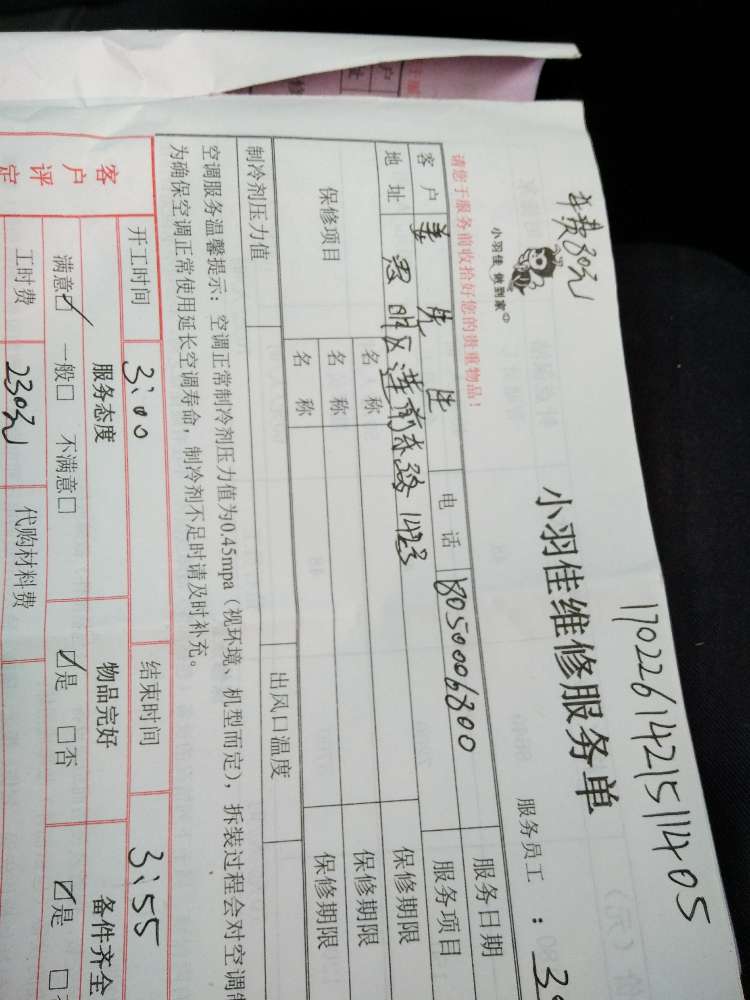 17022614215111405
车费30元
小羽佳 做到家
小羽佳维修服务单
服务员工 :
请您于服务前收拾好您的贵重物品!
客户 姜先生 电话 18050006800 服务日期
地址 思明区莲前东路1423 服务项目
保修项目 名称 保修期限
名称 保修期限
名称 保修期限
制冷剂压力值 出风口温度
空调服务温馨提示:空调正常制冷剂压力值为0.45mpa(视环境、机型而定),拆装过程会对空调制
为确保空调正常使用延长空调寿命,制冷剂不足时请及时补充。
客户评定 开工时间 3:00 结束时间 3:55
服务态度 物品完好 备件齐全
满意☑ 一般□ 不满意□ ☑是 □否 ☑是 □
工时费 230元 代购材料费